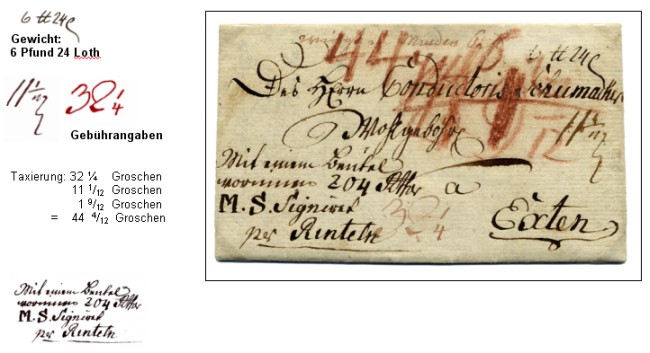 6 ℔ 24
Gewicht:
6 Pfund 24 Loth
11 1/12 32 1/4
Gebührangaben
Taxierung: 32 ¼ Groschen
11 1/12 Groschen
1 9/12 Groschen
= 44 4/12 Groschen
Mit einem Beutel
worinnen 204 Rthr
M. S. Signiret
per Rinteln
44
6 ℔ 24
Des Herrn Conductoris Schumacher
11 1/12
Mit einem Beutel
worinnen 204 Rthr
a
M. S. Signiret
32 1/4
Exten
per Rinteln